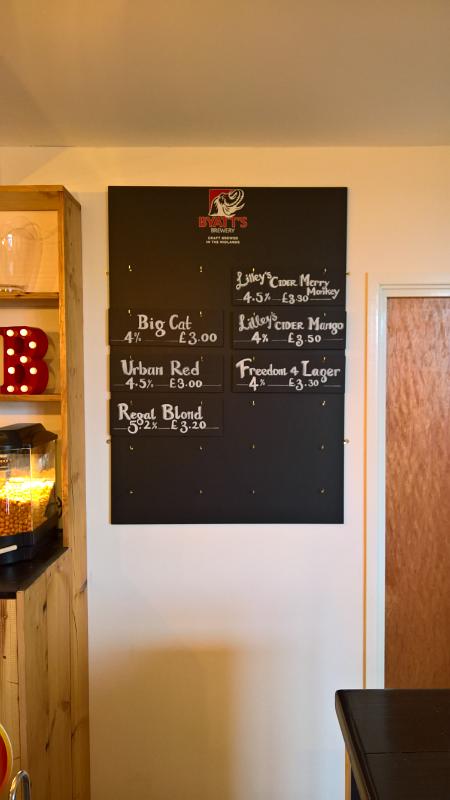 BYATT'S
BREWERY
CRAFT BREWED
IN THE MIDLANDS
Big Cat
4% £3.00
Urban Red
4.5% £3.00
Regal Blond
5.2% £3.20
Lilley's CIDER Merry
Monkey
4.5% £3.30
Lilley's CIDER Mango
4% £3.50
Freedom 4 Lager
4% £3.30
B